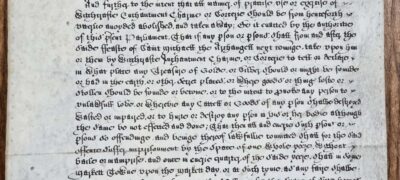 And further to the intent that all maner of practise use or exercise of
Witchcrafte Enchantment Charme or Sorcerie should be from henceforth
utterlie avoyded abolished and taken away; Be it enacted by the authoritie
of this p'sent Parliament That if any p'son or p'sons shall from and after the
saide feaste of Saint Michaell the Archangell next cominge, take upon him
or them by Witchcrafte Inchantment Charme or Sorcerie to tell or declare
in what place any treasure of Golde or Silver should or might be founde
or had in the earth or other secret places, or where goods or things loste or
stollen should be founde or become, or to the intent to p'voke any person to
unlawfull love or wherebie any Cattell or Goods of any p'son shall be destroyed
wasted or impaired, or to hurte or destroy any p'son in his or her bodie although
the same be not effected and done; That then all and everie such p'son or
p'sons so offendinge and beinge thereof lawfullie convicted shall for the said
offence suffer imprisonment by the space of one whole yeere without
baile or mainprise, and once in everie quarter of the saide yeere shall in some
markett towne upon the markett day or at such tyme as any faire shalbe